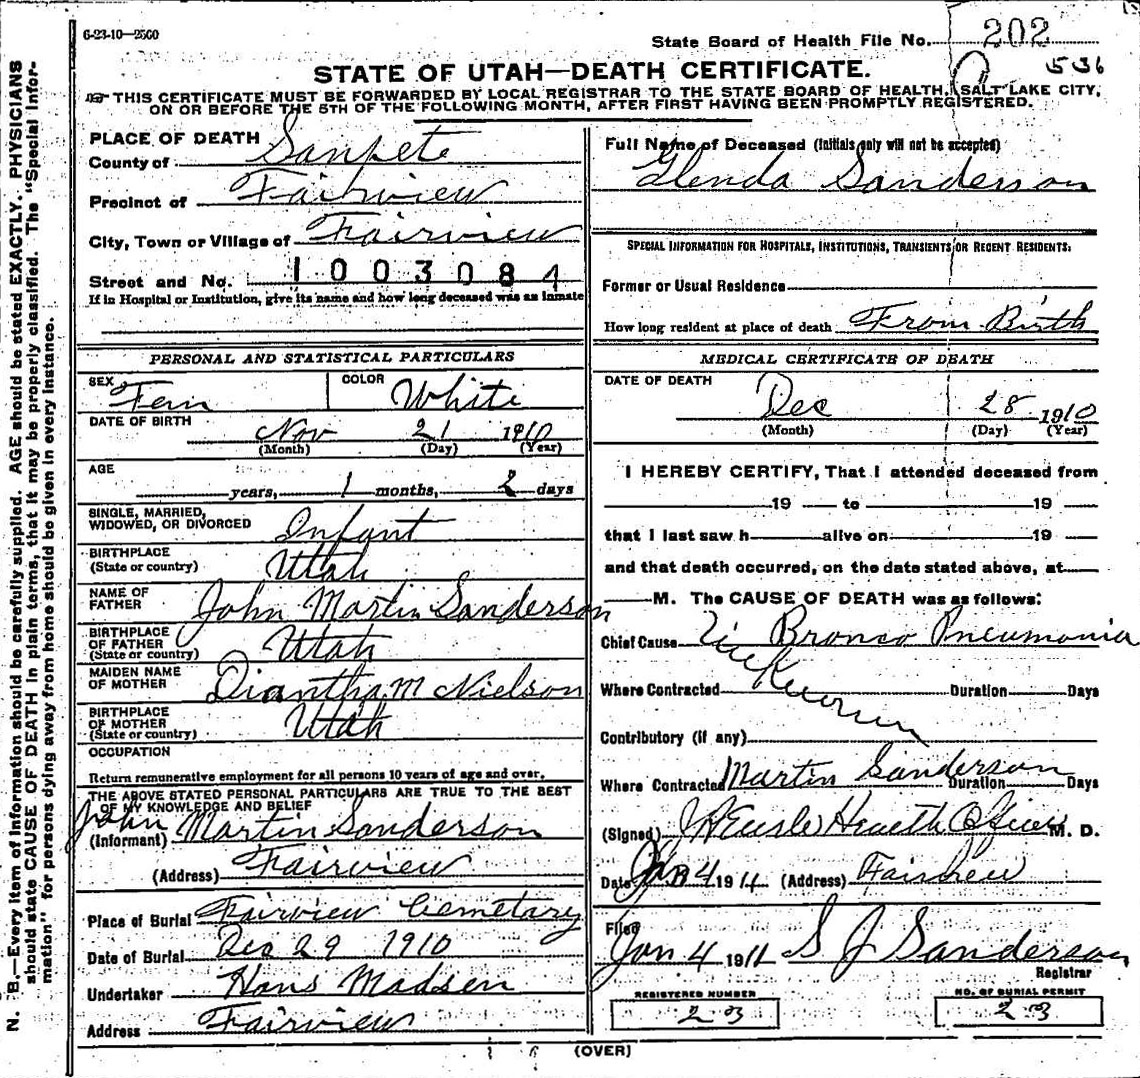 6-23-10—2500
State Board of Health File No. 202
536
STATE OF UTAH—DEATH CERTIFICATE.
THIS CERTIFICATE MUST BE FORWARDED BY LOCAL REGISTRAR TO THE STATE BOARD OF HEALTH, SALT LAKE CITY,
ON OR BEFORE THE 5TH OF THE FOLLOWING MONTH, AFTER FIRST HAVING BEEN PROMPTLY REGISTERED.
PLACE OF DEATH
County of Sanpete
Precinct of Fairview
City, Town or Village of Fairview
Street and No. 1003084
If in Hospital or Institution, give its name and how long deceased was an inmate
PERSONAL AND STATISTICAL PARTICULARS
SEX Fem COLOR White
DATE OF BIRTH Nov 21 1910
(Month) (Day) (Year)
AGE
years, 1 months, 2 days
SINGLE, MARRIED,
WIDOWED, OR DIVORCED Infant
BIRTHPLACE
(State or country) Utah
NAME OF
FATHER John Martin Sanderson
BIRTHPLACE
OF FATHER
(State or country) Utah
MAIDEN NAME
OF MOTHER Diantha M Nielson
BIRTHPLACE
OF MOTHER
(State or country) Utah
OCCUPATION
Return remunerative employment for all persons 10 years of age and over.
THE ABOVE STATED PERSONAL PARTICULARS ARE TRUE TO THE BEST
OF MY KNOWLEDGE AND BELIEF
(Informant) John Martin Sanderson
(Address) Fairview
Place of Burial Fairview Cemetary
Date of Burial Dec 29 1910
Undertaker Hans Madsen
Address Fairview
Full Name of Deceased (Initials only will not be accepted)
Glenda Sanderson
SPECIAL INFORMATION FOR HOSPITALS, INSTITUTIONS, TRANSIENTS OR RECENT RESIDENTS:
Former or Usual Residence
How long resident at place of death From Birth
MEDICAL CERTIFICATE OF DEATH
DATE OF DEATH
Dec 28 1910
(Month) (Day) (Year)
I HEREBY CERTIFY, That I attended deceased from
19 to 19
that I last saw h alive on 19
and that death occurred, on the date stated above, at
M. The CAUSE OF DEATH was as follows:
Chief Cause Bronco Pneumonia
Where Contracted Duration Days
Contributory (if any)
Where Contracted Martin Sanderson Duration Days
(Signed) Health Officer M. D.
Date Jan 4 1911 (Address) Fairview
Filed
Jan 4 1911 S J Sanderson
Registrar
REGISTERED NUMBER
23
NO. OF BURIAL PERMIT
23
(OVER)
N. B.—Every item of information should be carefully supplied. AGE should be stated EXACTLY. PHYSICIANS
should state CAUSE OF DEATH in plain terms, that it may be properly classified. The "Special Infor-
mation" for persons dying away from home should be given in every instance.